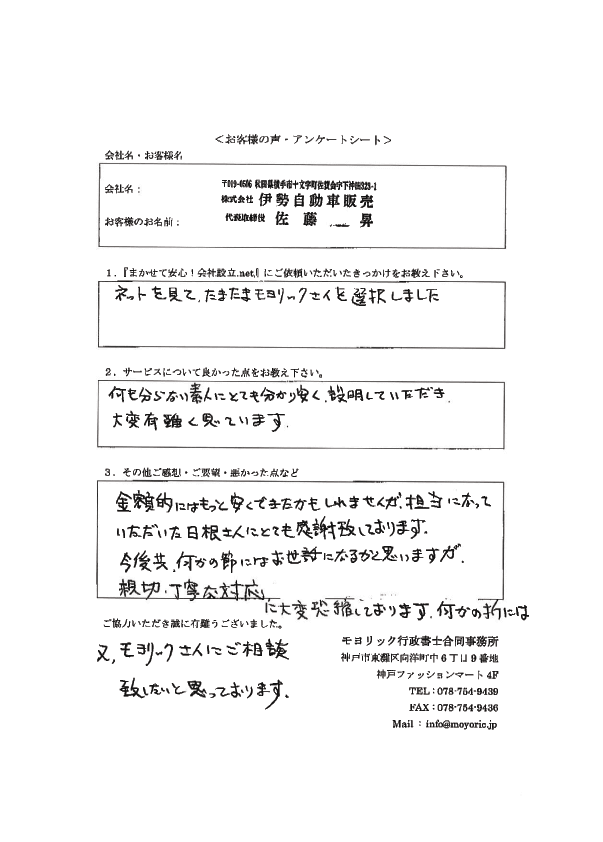 ＜お客様の声・アンケートシート＞
会社名・お客様名
会社名：
〒019-0506 秋田県横手市十文字町佐賀会字下沖田323-1
株式会社 伊勢自動車販売
お客様のお名前：
代表取締役 佐藤 昇
1．『まかせて安心！会社設立.net』にご依頼いただいたきっかけをお教え下さい。
ネットを見て、たまたまモヨリックさんを選択しました
2．サービスについて良かった点をお教え下さい。
何も分らない素人にとても分かり安く、説明していただき、
大変有難く思ています。
3．その他ご感想・ご要望・悪かった点など
金額的にはもっと安くできたかもしれませんが、担当になって
いただいた日根さんにとても感謝致しております。
今後共、何かの節にはお世話になるかと思いますが、
親切、丁寧な対応、
に大変恐縮しております。何かの折には
ご協力いただき誠に有難うございました。
又、モヨリックさんにご相談
致したいと思っております。
モヨリック行政書士合同事務所
神戸市東灘区向洋町中6丁目9番地
神戸ファッションマート4F
TEL：078-754-9439
FAX：078-754-9436
Mail：info@moyoric.jp